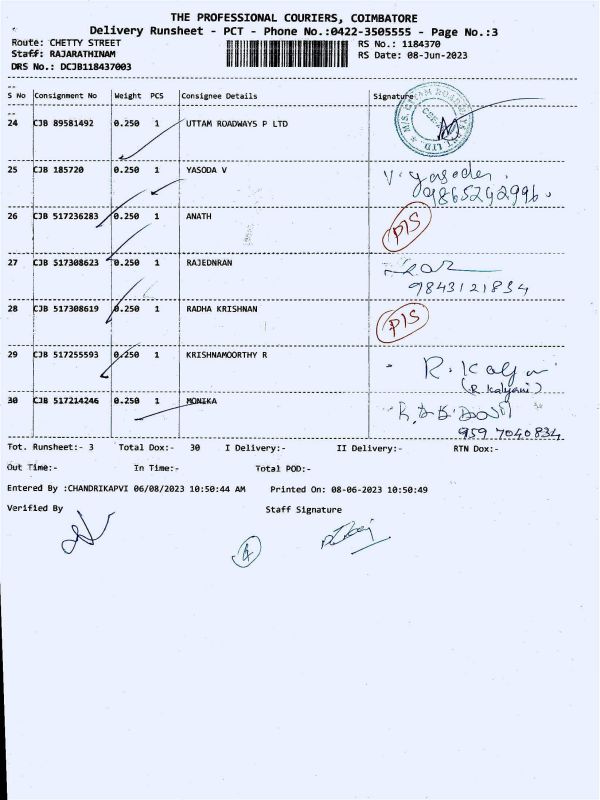 THE PROFESSIONAL COURIERS, COIMBATORE
Delivery Runsheet - PCT - Phone No.:0422-3505555 - Page No.:3
Route: CHETTY STREET RS No.: 1184370
Staff: RAJARATHINAM RS Date: 08-Jun-2023
DRS No.: DCJB118437003
S No Consignment No Weight PCS Consignee Details Signature
24 CJB 89581492 0.250 1 UTTAM ROADWAYS P LTD
25 CJB 185720 0.250 1 YASODA V V. yasoda.
9865242996.
26 CJB 517236283 0.250 1 ANATH P/S
27 CJB 517308623 0.250 1 RAJEDNRAN
9843121834
28 CJB 517308619 0.250 1 RADHA KRISHNAN P/S
29 CJB 517255593 0.250 1 KRISHNAMOORTHY R R. Kalya
(R. Kalyani)
30 CJB 517214246 0.250 1 MONIKA
959 7040834
Tot. Runsheet:- 3 Total Dox:- 30 I Delivery:- II Delivery:- RTN Dox:-
Out Time:- In Time:- Total POD:-
Entered By :CHANDRIKAPVI 06/08/2023 10:50:44 AM Printed On: 08-06-2023 10:50:49
Verified By Staff Signature